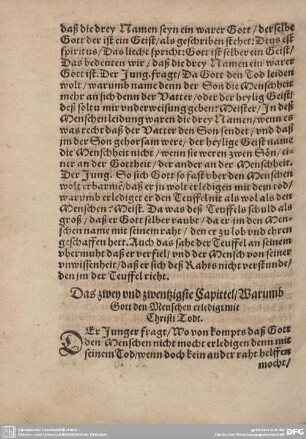 daß die drey Namen seyn ein warer Gott / derselbe
Gott der ist ein Geist / als geschriben stehet: Deus est
spiritus / Das liecht spricht: Gott ist selber ein Geist /
Das bedeuten wir / daß die drey Namen ein warer
Gott ist. Der Jung. fragt / Da Gott den Tod leiden
wolt / warumb name denn der Son die Menschheit
mehr an sich denn der Vatter / oder der heylig Geist /
deß soltu mir underweisung geben: Meister / In deß
Menschen leidung waren die drey Namen / wenn es
was recht daß der Vatter den Son sendet / und daß
jm der Son gehorsam were / der heylige Geist name
die Menschheit nicht / denn sie weren zwen Sön / ei-
ner an der Gottheit / der ander an der Menschheit.
Der Jung. So sich Gott so fast über den Menschen
wolt erbarmē / daß er jn wolt erledigen mit dem tod /
warumb erlediget er den Teuffel nit als wol als den
Menschen: Meist. Da was deß Teuffels schuld als
groß / daß er Gott selber raubt / da er jm den Men-
schen name mit seinem raht / den er zu lob und ehren
geschaffen hett. Auch das sahe der Teuffel an seinem
übermuht daß er verfiel / und der Mensch von seiner
unwissenheit / daß er sich deß Rahts nicht verstunde /
den jm der Teuffel riecht.
Das zwey und zwentzigste Capittel / Warumb
Gott den Menschen erlediget mit
Christi Todt.
DEr Junger fragt / Wo von kompts daß Gott
den Menschen nicht mocht erledigen denn mit
seinem Tod / wenn doch kein ander raht helffen
mocht /